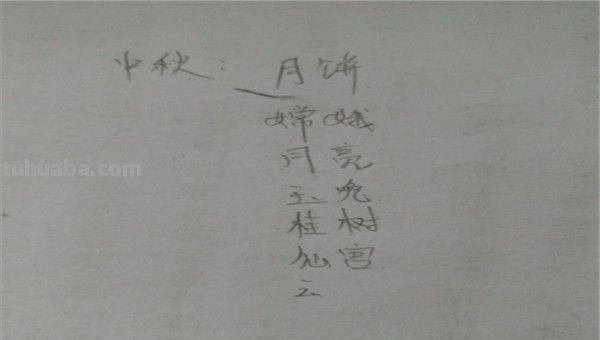 中秋：月饼
嫦娥
月亮
tuhuaba.com
玉兔
桂树
仙宫
云